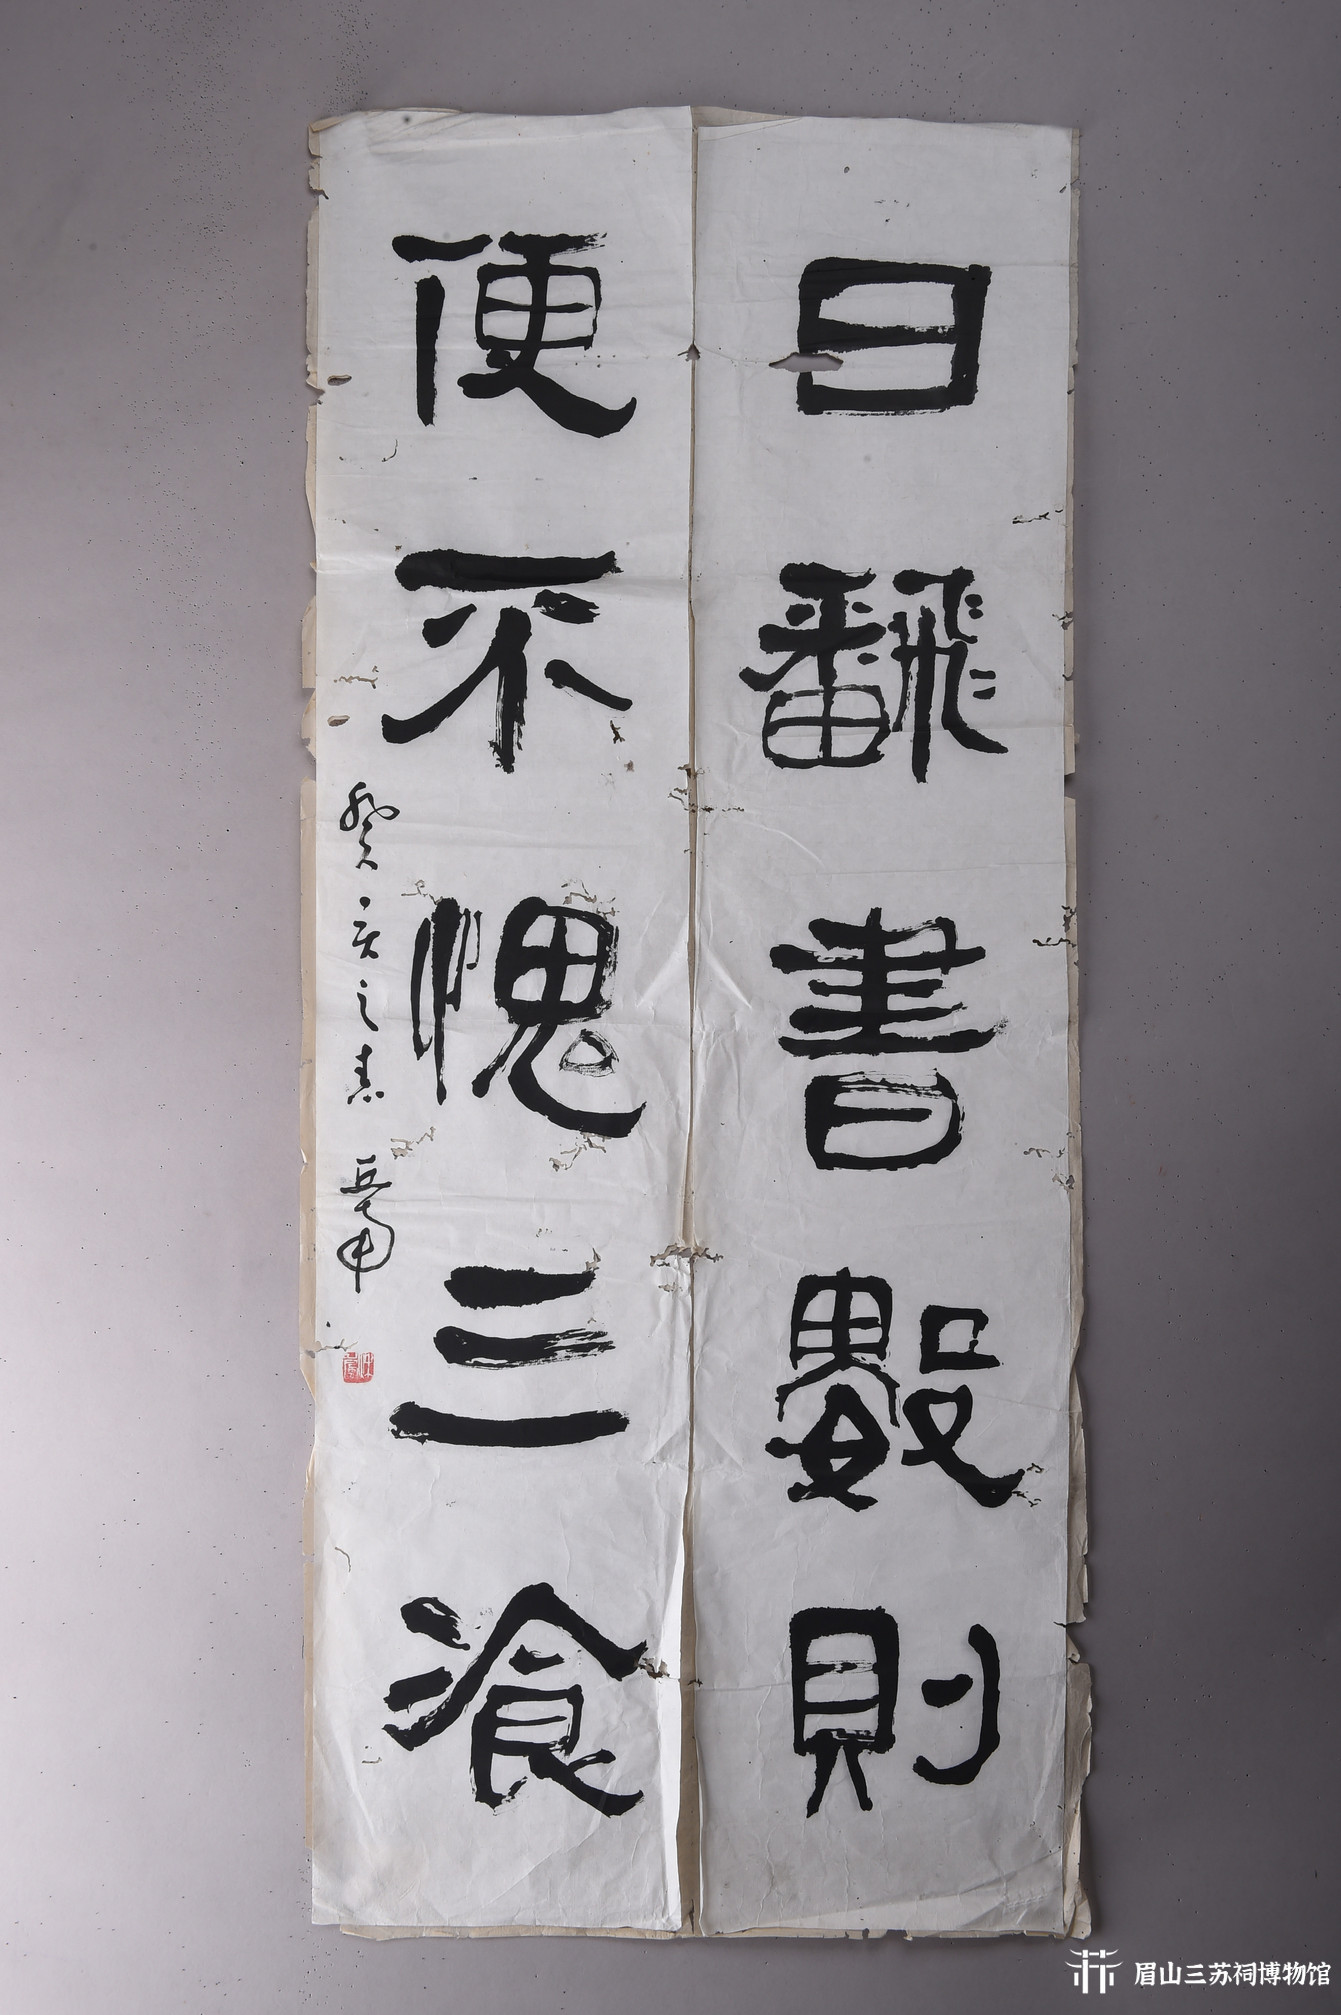 日翻書數則
便不愧三飡
癸亥之春
眉山三苏祠博物馆